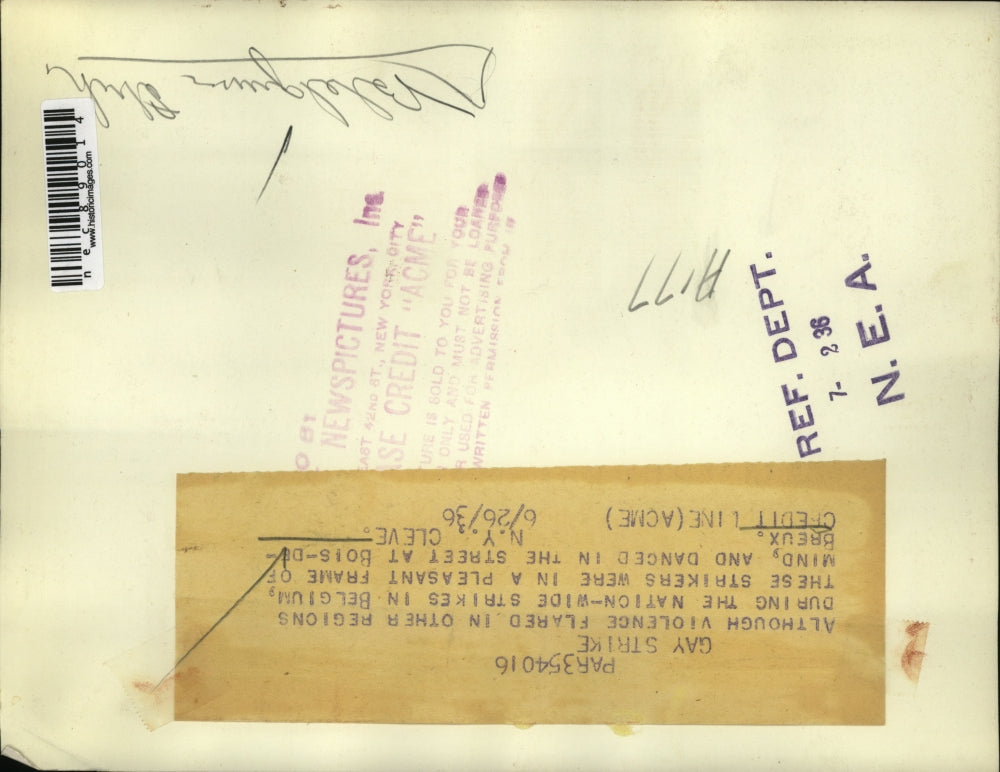 PAR354016
GAY STRIKE
ALTHOUGH VIOLENCE FLARED IN OTHER REGIONS
DURING THE NATION-WIDE STRIKES IN BELGIUM,
THESE STRIKERS WERE IN A PLEASANT FRAME OF
MIND, AND DANCED IN THE STREET AT BOIS-DE-
BREUX.
N.Y., CLEVE.
CREDIT LINE(ACME) 6/26/36
NEWSPICTURES, Inc
EAST 42ND ST., NEW YORK CITY
ASE CREDIT "ACME"
URE IS SOLD TO YOU FOR YOUR
ONLY AND MUST NOT BE LOANED
R USED FOR ADVERTISING PURPOSES
WRITTEN PERMISSION FROM
REF. DEPT.
7- 2 36
N. E. A.
A177
nec89014
www.historicimages.com